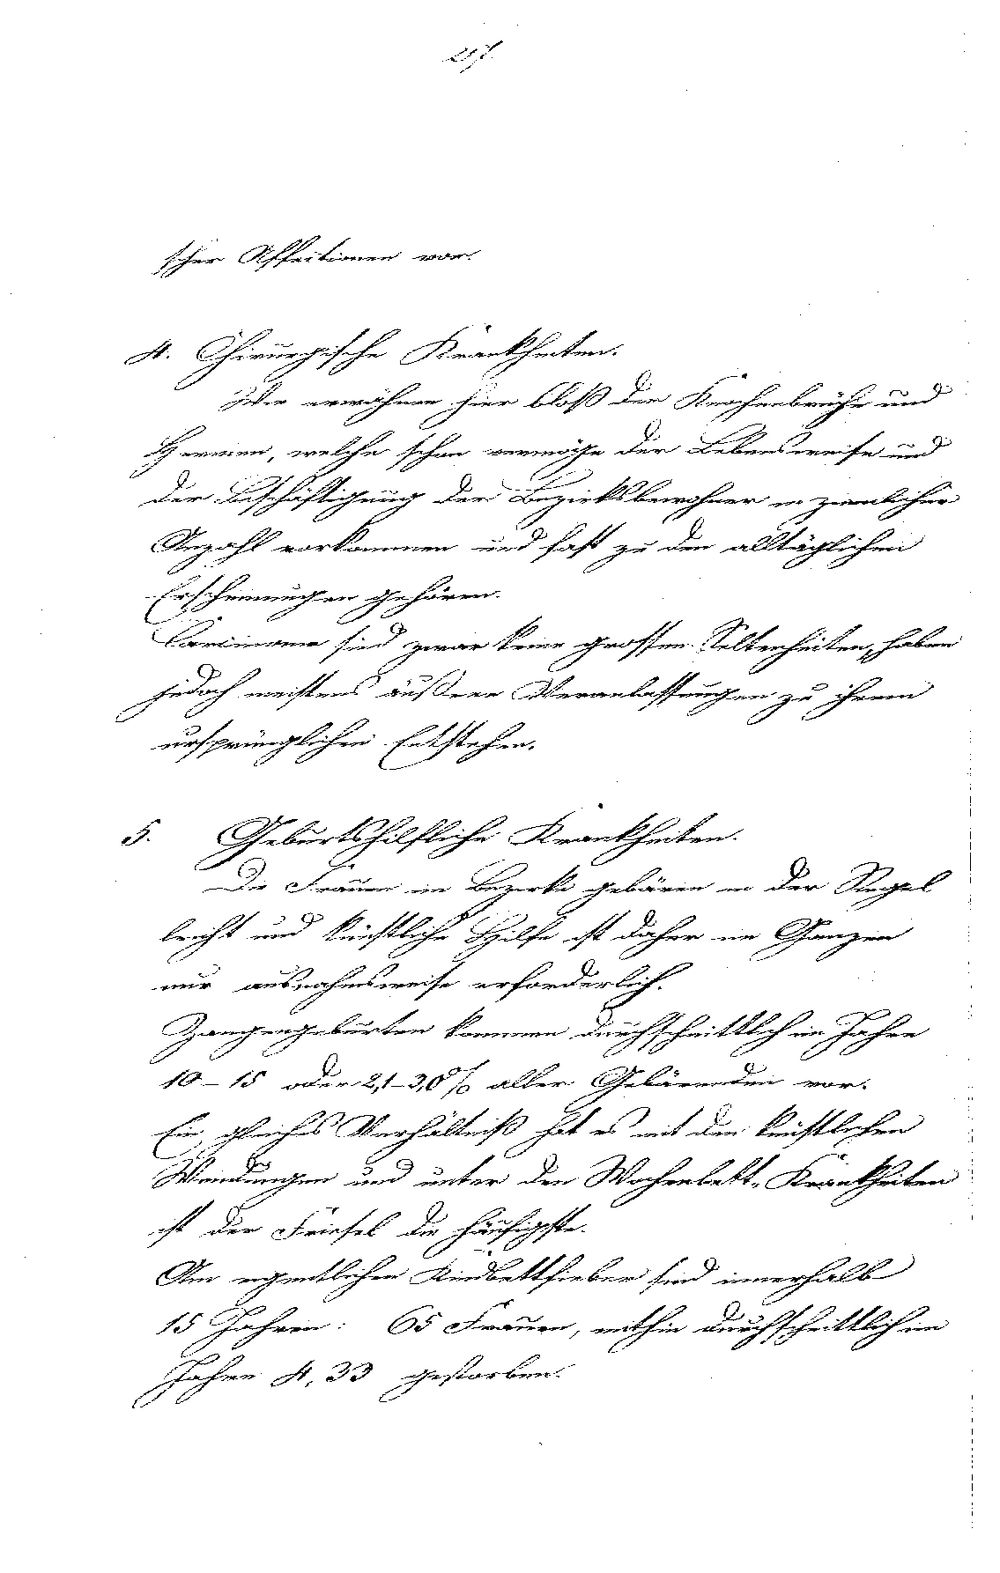 217.
scher Affectionen vor.
4. Chirurgische Krankheiten.
Wir erwähnen hier bloß der Knochenbrüche und
Hernien, welche schon vermöge der Lebensweise und
der Beschäftigung der Bezirksbewohner in ziemlicher
Anzahl vorkommen und fast zu den alltäglichen
Erscheinungen gehören.
Carcinome sind zwar keine grossen Seltenheiten, haben
jedoch meistens äußere Veranlassungen zu ihrem
ursprünglichen Entstehen.
5. Geburtshilfliche Krankheiten.
Die Frauen im Bezirke gebären in der Regel
leicht und künstliche Hilfe ist daher im Ganzen
nur ausnahmsweise erforderlich.
Zangengeburten kommen durchschnittlich im Jahre
10–15 oder 2,1–3,0% aller Gebärenden vor.
Ein gleiches Verhältniß hat es mit den künstlichen
Wendungen und unter den Wochenbett-Krankheiten
ist der Friesel die häufigste.
Am eigentlichen Kindbettfieber sind innerhalb
15 Jahren: 65 Frauen, mithin durchschnittlich im
Jahre 4,33 gestorben.